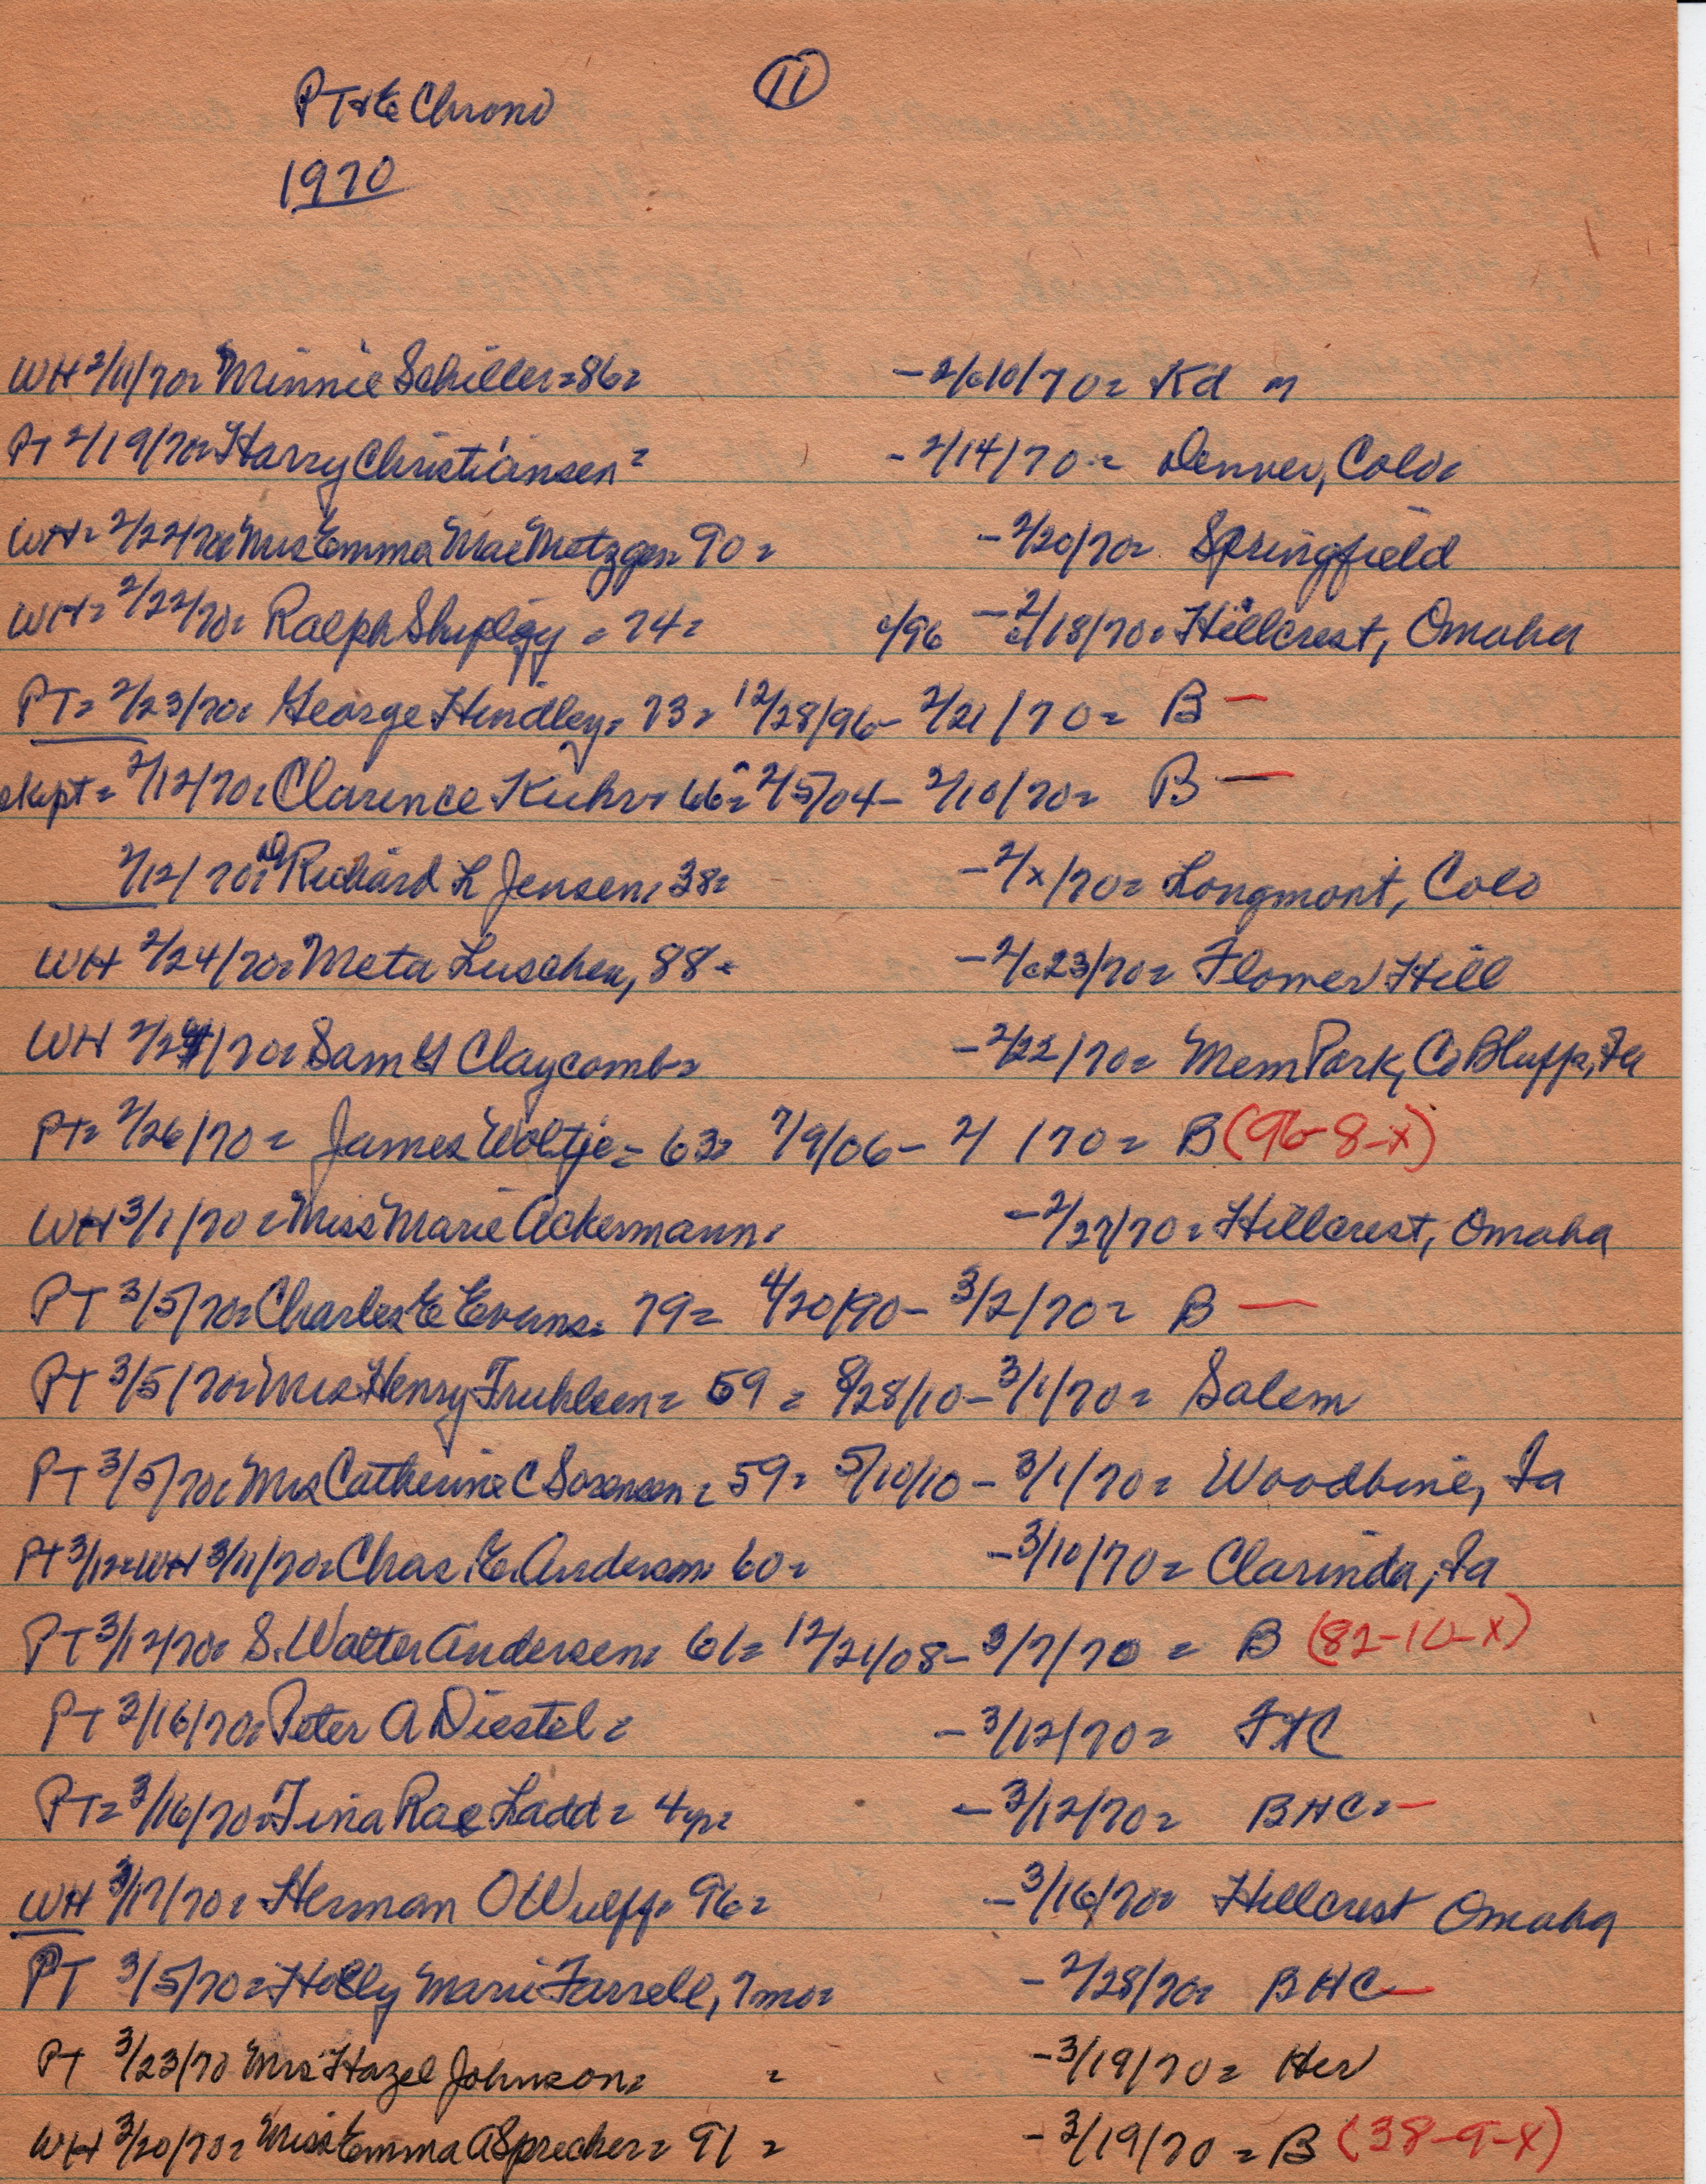 PT & E Chrono
11
1970
WH 2/11/70= Minnie Schiller=86= -2/10/70= Kd
PT 2/19/70= Harry Christiansen= -2/14/70= Denver, Colo=
WH= 2/22/70= Mrs Emma Mae Metzger= 90= -2/20/70= Springfield
WH= 2/22/70= Ralph Shipley=74= c/96 -2/18/70= Hillcrest, Omaha
PT= 2/23/70= George Hindley= 73= 12/28/96- 2/21/70= B —
2/12/70= Clarence Kuhr= 66= 2/5/04- 2/10/70= B —
2/12/70= Richard L Jensen, 38= -2/x/70= Longmont, Colo
WH 2/24/70= Meta Luschen, 88= -2/23/70= Flower Hill
WH 2/24/70= Sam G Claycomb= -2/22/70= Mem Park, Co Bluffs, Ia
PT= 2/26/70= James Woltje= 63= 7/9/06- 2/ /70= B (96-8-x)
WH 3/1/70= Miss Marie Ackermann= -2/27/70= Hillcrest, Omaha
PT 3/5/70= Charles E Evans= 79= 4/20/90- 3/2/70= B —
PT 3/5/70= Mrs Henry Fruhlsen= 59= 8/28/10-3/1/70= Salem
PT 3/5/70= Mrs Catherine C Sorensen= 59= 5/10/10- 3/1/70= Woodbine, Ia
PT 3/12=WH 3/11/70= Chas. E. Anderson= 60= -3/10/70= Clarinda, Ia
PT 3/12/70= S. Walter Andersen= 61= 12/21/08- 3/7/70= B (82-10-x)
PT 3/16/70= Peter A Diestel= -3/12/70= FHC
PT= 3/16/70= Tina Rae Ladd= 4yr= -3/12/70= BHC= —
WH 3/17/70= Herman O Wulff= 96= -3/16/70= Hillcrest Omaha
PT 3/5/70= Holly Marie Farrell, 7mo= -2/28/70= BHC —
PT 3/23/70 Mrs Hazel Johnson= = -3/19/70= Her
WH 3/20/70= Miss Emma A Sprecher= 91= -3/19/70= B (38-9-x)